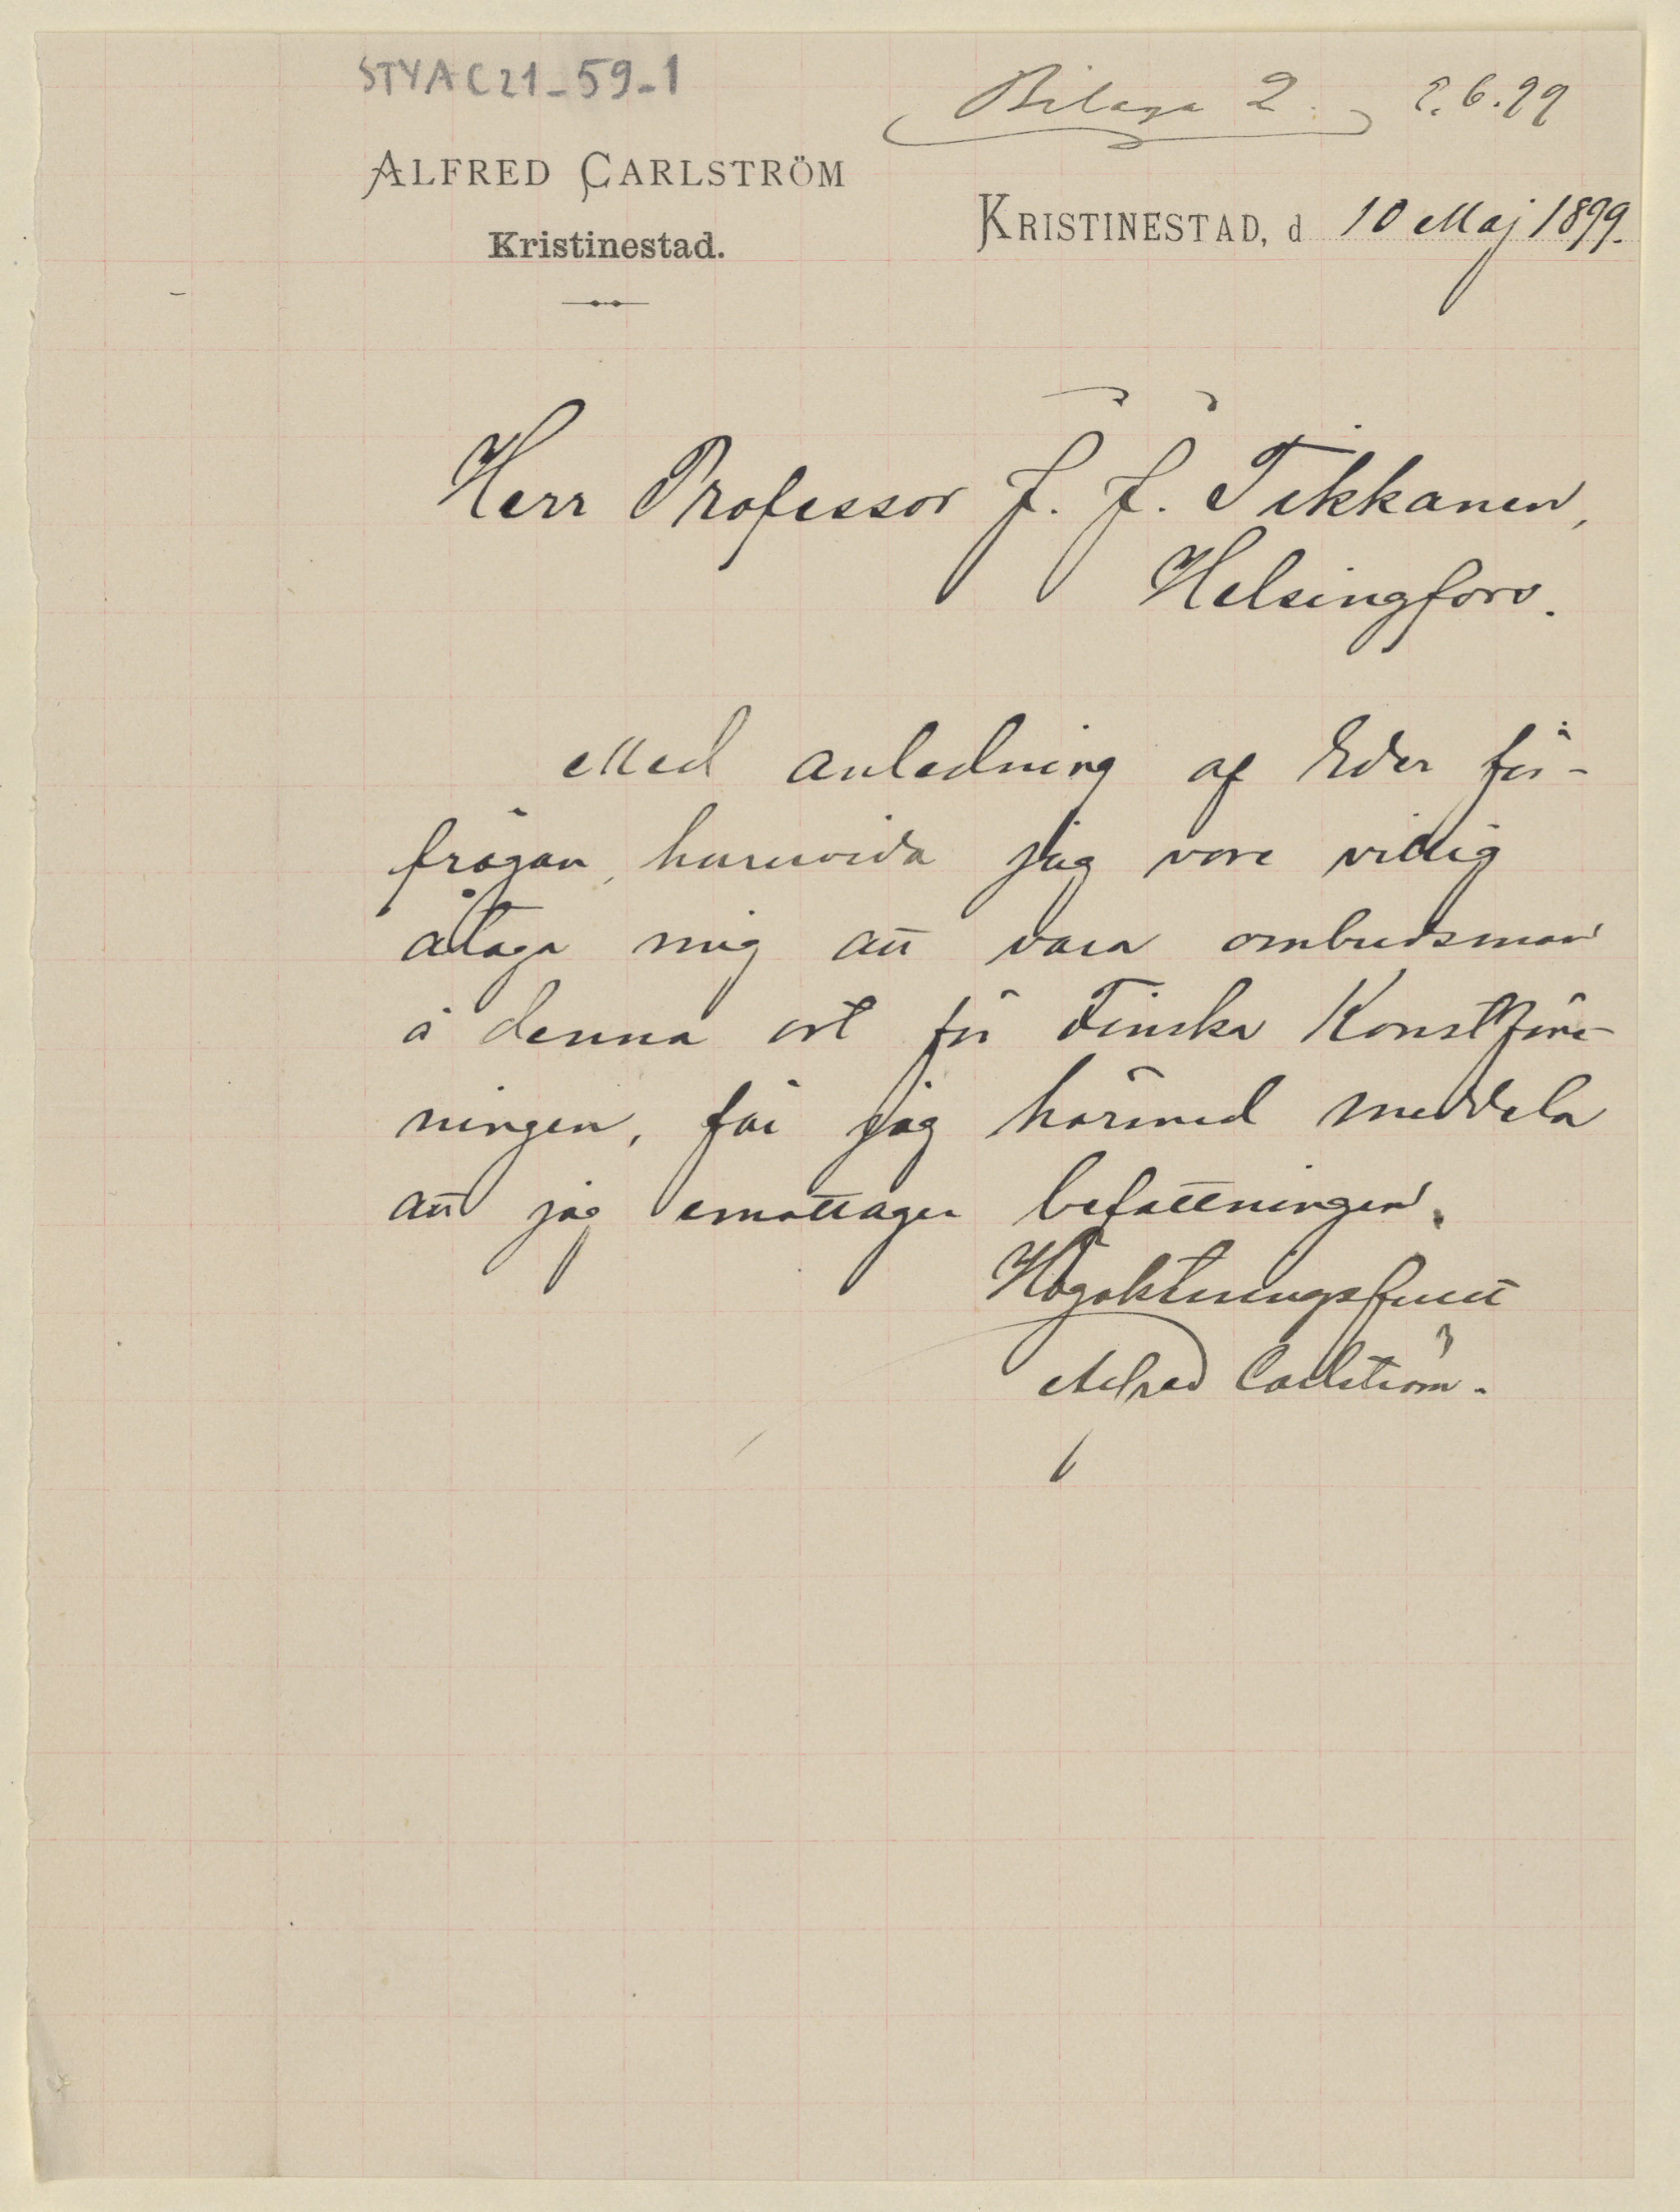 STYA C21_59_1
Bilaga 2. 2.6.99
ALFRED CARLSTRÖM
Kristinestad.
KRISTINESTAD, d 10 Maj 1899.
Herr Professor J. J. Tikkanen,
Helsingfors.
Med anledning af Eder för-
frågan, huruvida jag vore villig
åtaga mig att vara ombudsman
å denna ort för Finska Konstföre-
ningen, får jag härmed meddela
att jag emottager befattningen.
Högaktningsfullt
Alfred Carlström.